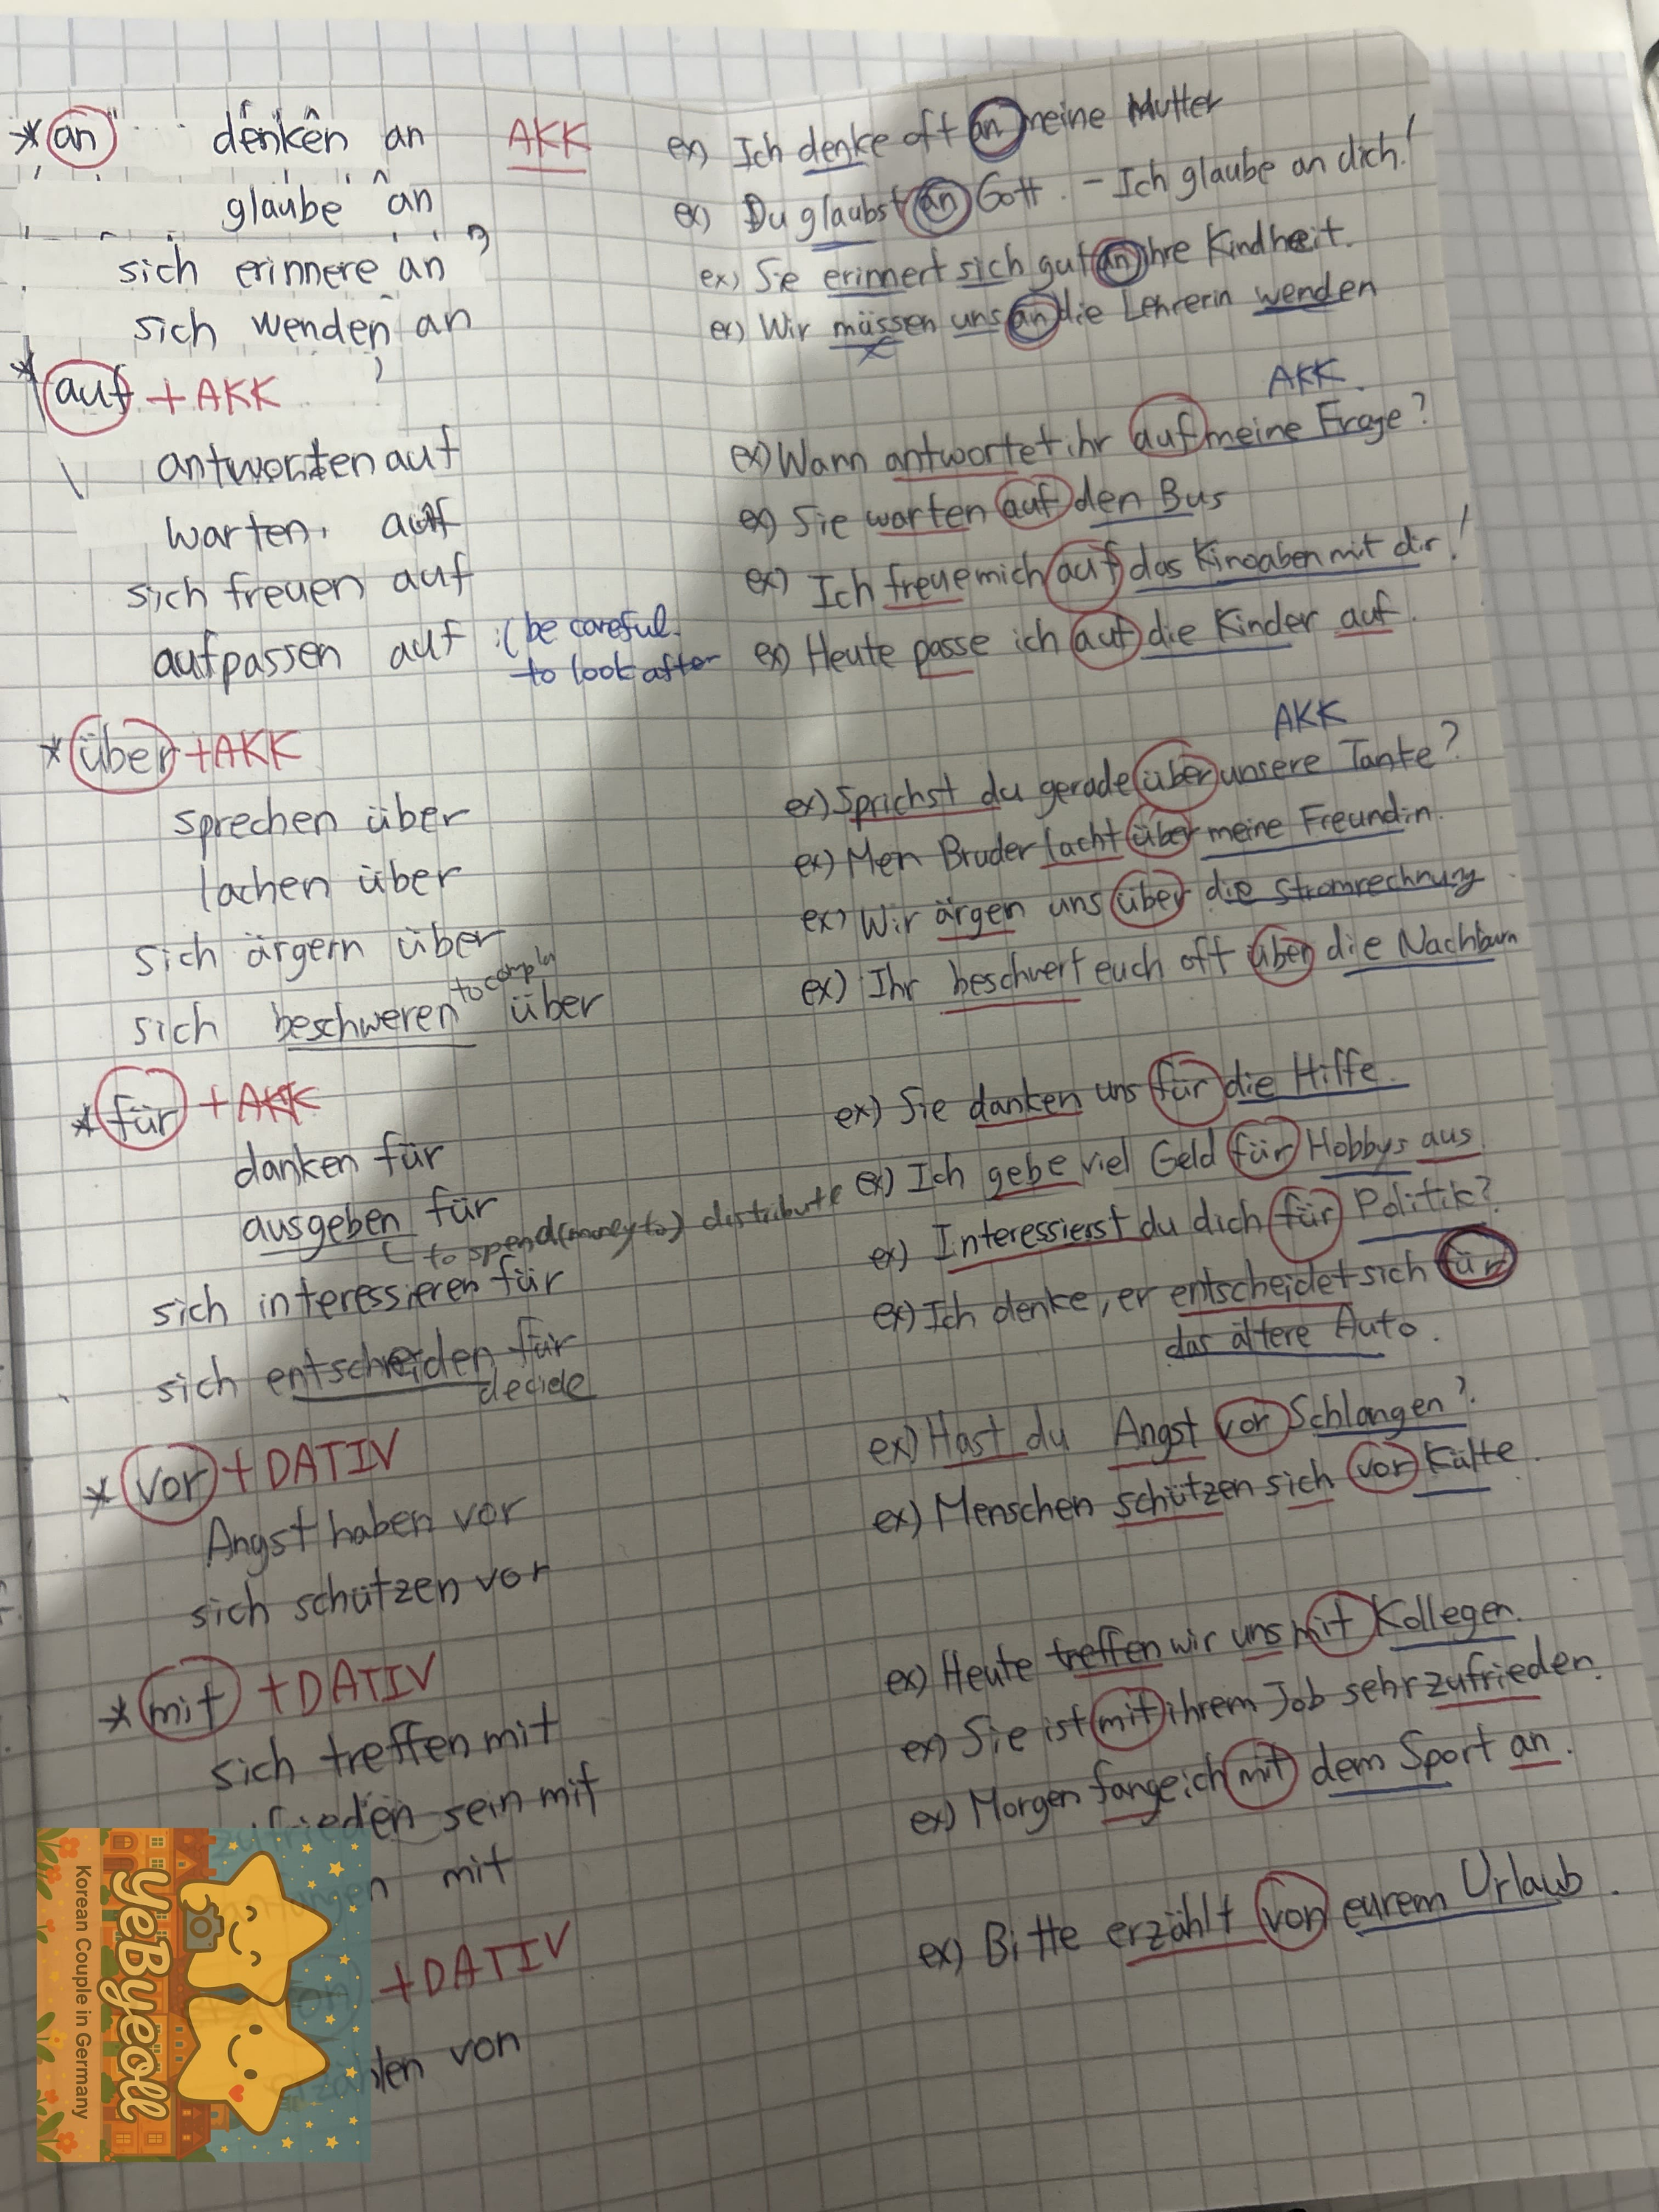 * an denken an AKK ex) Ich denke oft an meine Mutter
glaube an ex) Du glaubst an Gott. - Ich glaube an dich!
sich erinnere an ex) Sie erinnert sich gut an ihre Kindheit.
sich wenden an ex) Wir müssen uns an die Lehrerin wenden
* auf + AKK AKK.
antworten auf ex) Wann antwortet ihr auf meine Frage?
warten, auf ex) Sie warten auf den Bus
sich freuen auf ex) Ich freue mich auf das Kinoaben mit dir!
aufpassen auf :( be careful. ex) Heute passe ich auf die Kinder auf.
to look after
* über + AKK AKK
sprechen über ex) Sprichst du gerade über unsere Tante?
lachen über ex) Mein Bruder lacht über meine Freundin.
sich ärgern über ex) Wir ärgen uns über die Stromrechnung
sich beschweren über ex) Ihr beschwert euch oft über die Nachbarn
* für + AKK ex) Sie danken uns für die Hilfe.
danken für
ausgeben für ex) Ich gebe viel Geld für Hobbys aus
to spend(money to) distribute
sich interessieren für ex) Interessierst du dich für Politik?
sich entscheiden für ex) Ich denke, er entscheidet sich für
decide das ältere Auto.
* vor + DATIV ex) Hast du Angst vor Schlangen?
Angst haben vor ex) Menschen schützen sich vor Kälte.
sich schützen vor
* mit + DATIV ex) Heute treffen wir uns mit Kollegen.
sich treffen mit ex) Sie ist mit ihrem Job sehr zufrieden.
sein mit ex) Morgen fange ich mit dem Sport an.
mit
+ DATIV ex) Bitte erzählt von eurem Urlaub.
von
YeByeoll
Korean Couple in Germany